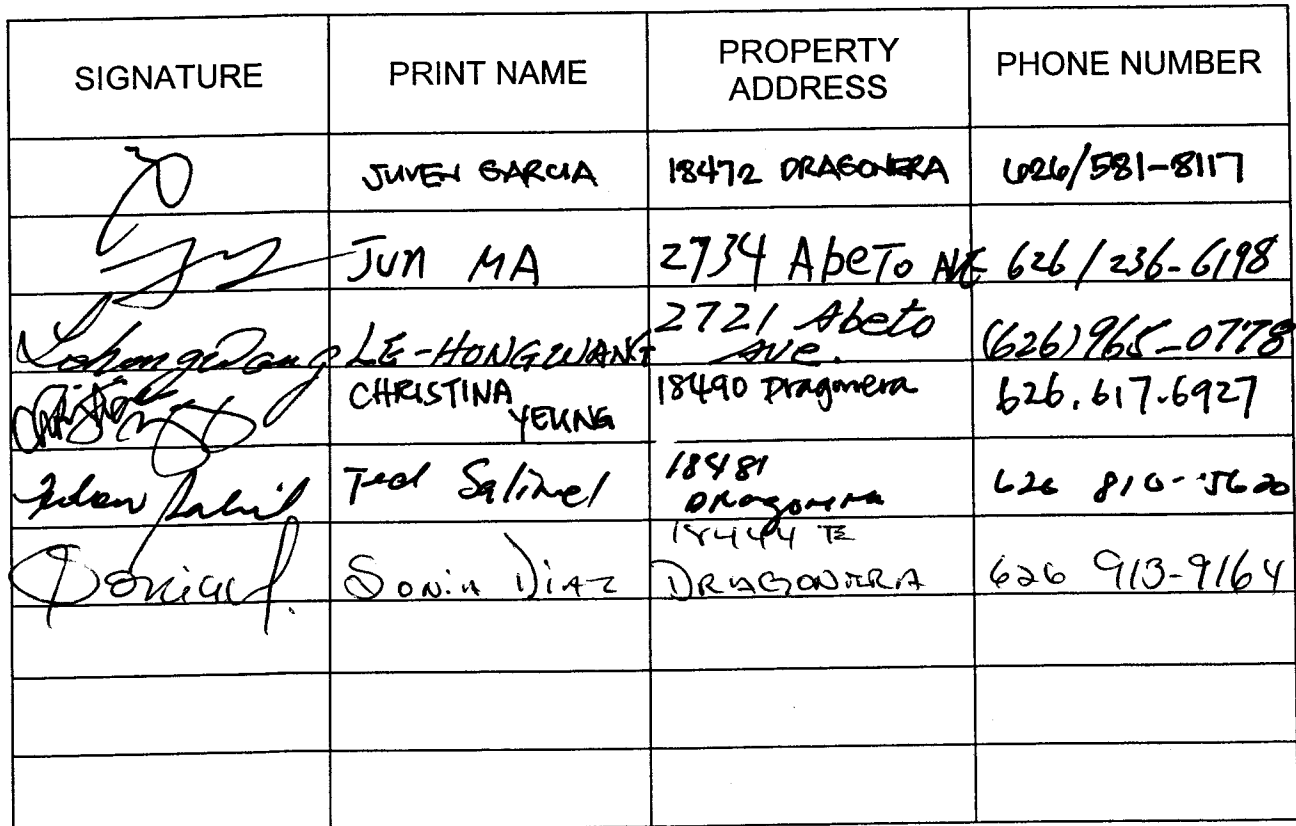 SIGNATURE
PRINT NAME
PROPERTY
ADDRESS
PHONE NUMBER
JUVEN GARCIA
18472 DRAGONERA
626/581-8117
JUN MA
2734 Abeto AVE
626/236-6198
LE-HONG WANG
2721 Abeto
Ave.
(626)965-0778
CHRISTINA
YEUNG
18490 Dragonera
626.617.6927
Ted
18481
Dragonera
626 810-5620
Sonia Diaz
18444 E
DRAGONERA
626 913-9164